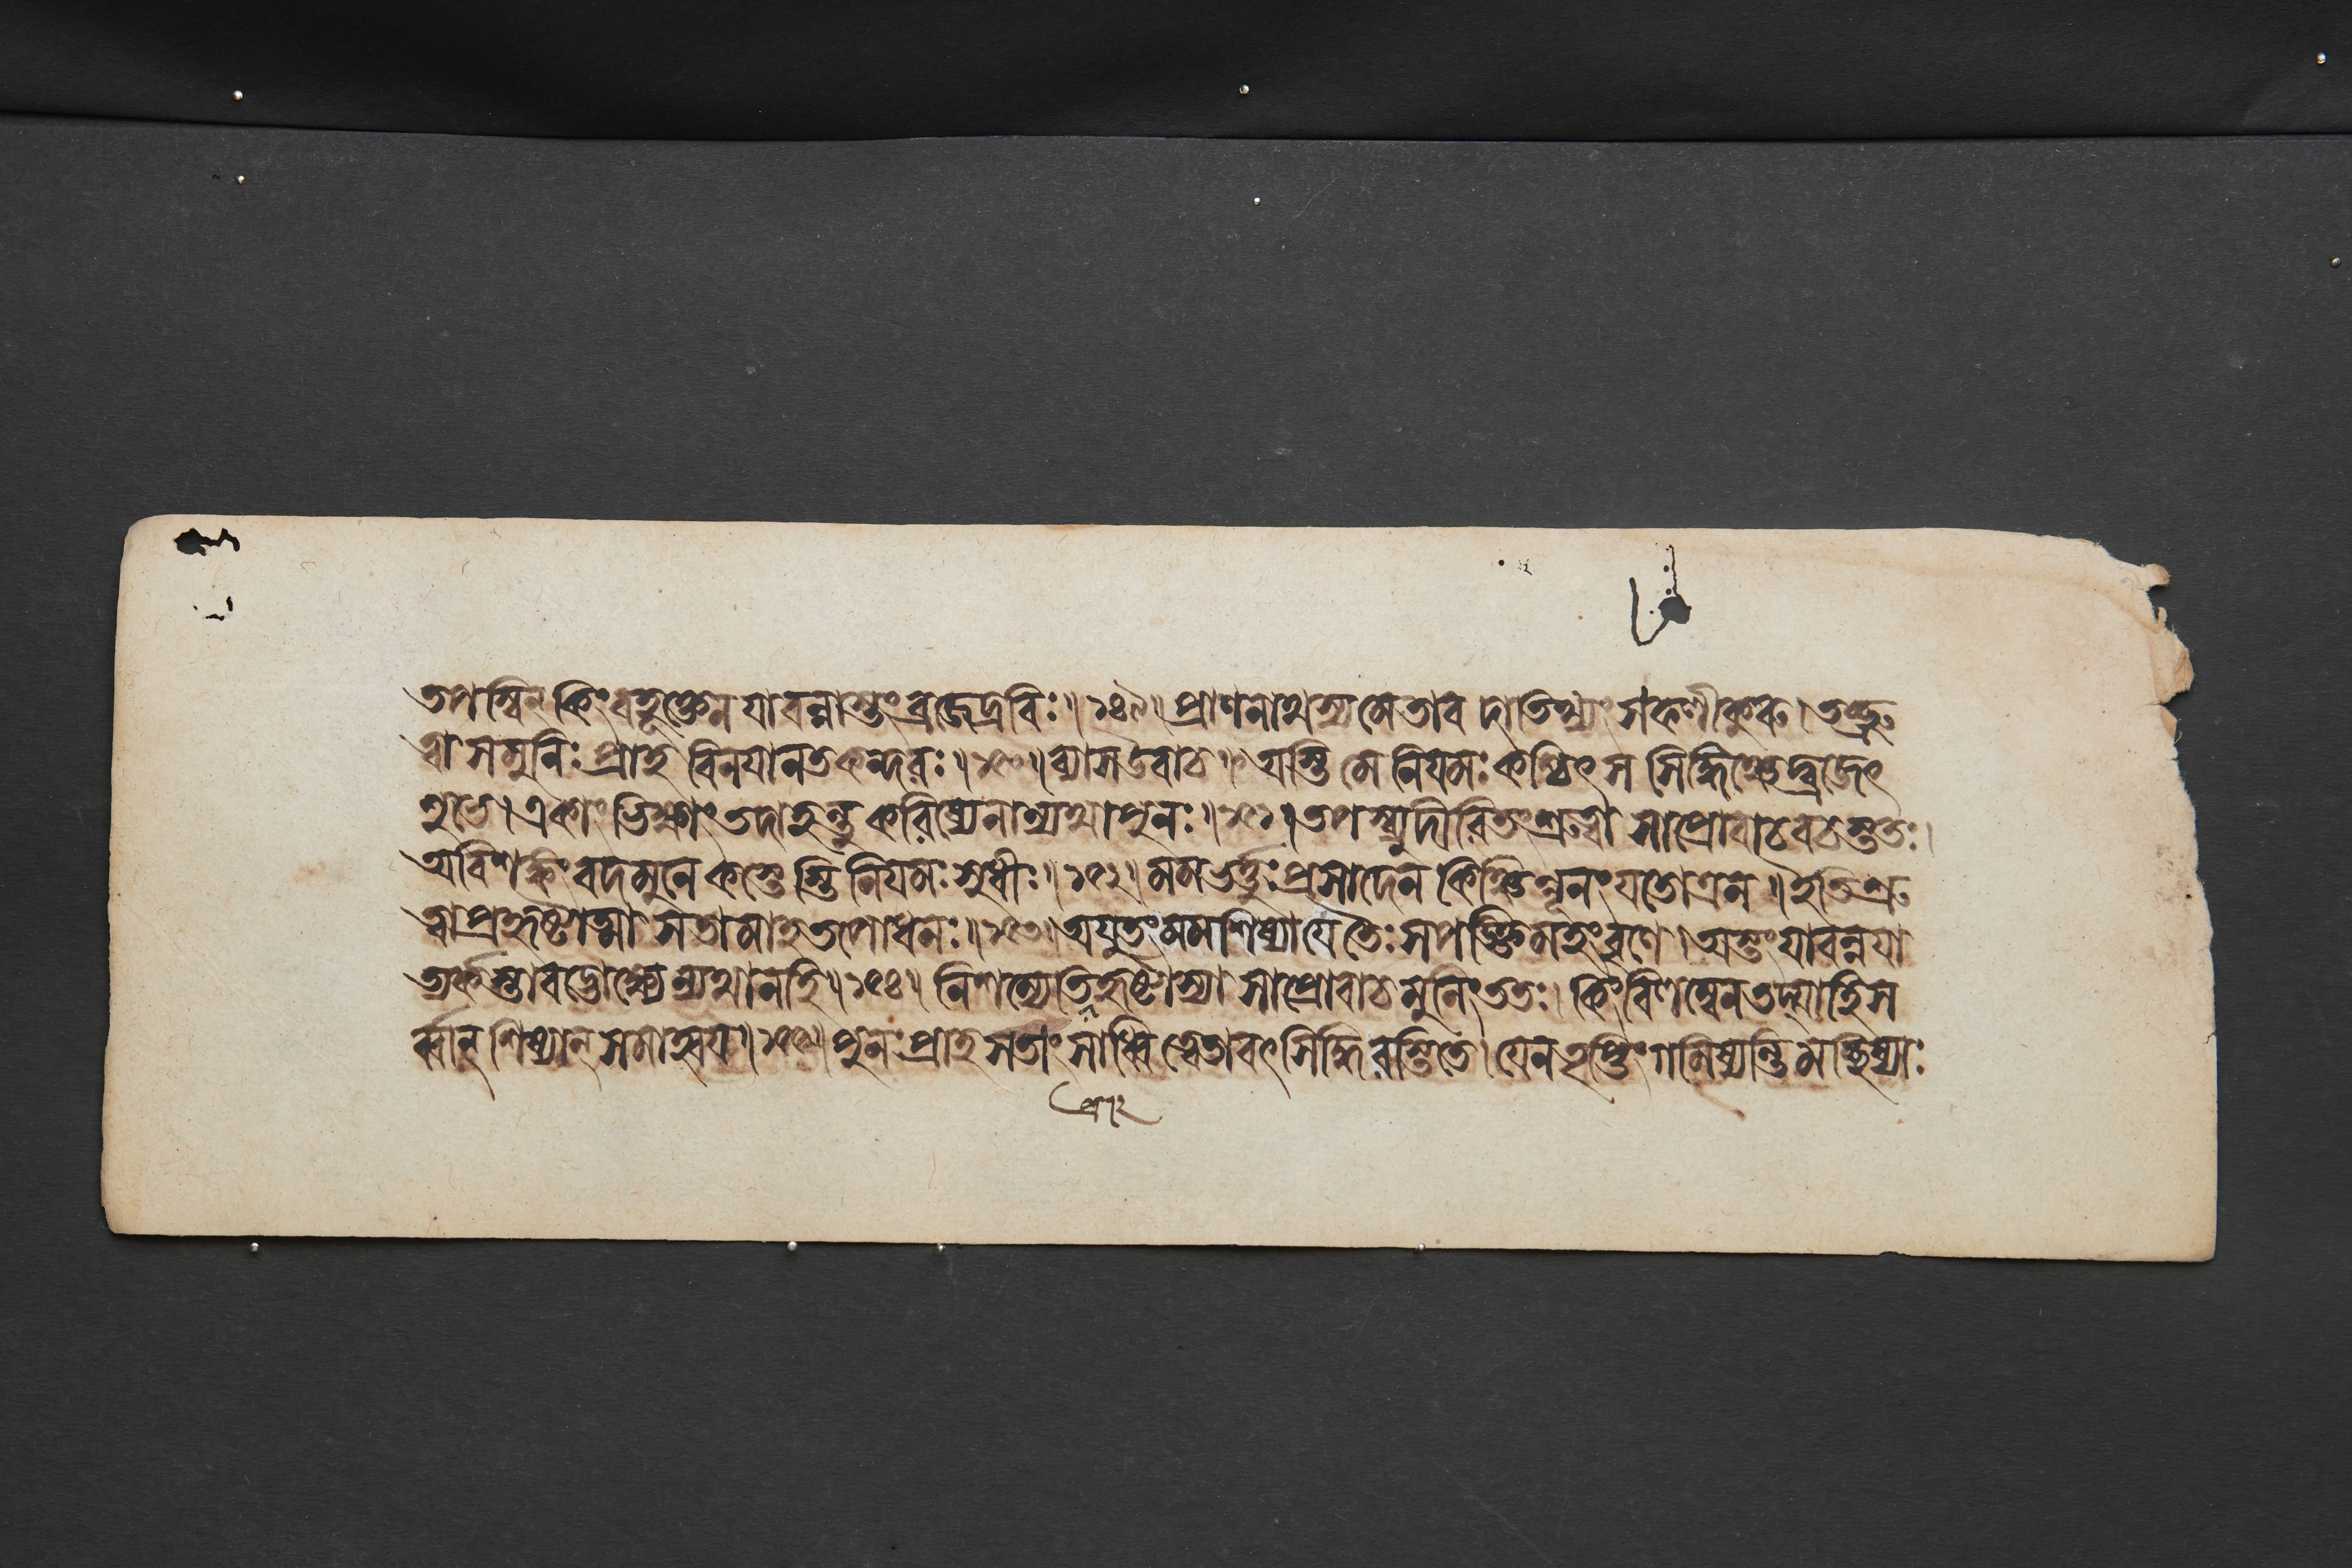 তপস্বিন্ কিং বহূক্তেন যাবন্নাস্তং ব্রজেদ্রবিঃ॥১৪৯॥ প্রাণনাথস্য মে তাবদাতিথ্যং সফলীকুরু। তচ্ছ্রু
ত্বা স মুনিঃ প্রাহ বিনযানতকন্ধরঃ॥১৫০॥ ব্যাস উবাচ॥ অস্তি মে নিযমঃ কশ্চিৎ স সিদ্ধিঞ্চেদ্ব্রজেৎ
শুভে। একাং ভিক্ষাং তদাহন্তু করিষ্যে নান্যথা পুনঃ॥১৫১॥ তপস্ব্যুদীরিতং শ্রুত্বা সা প্রোবাচ বচস্ততঃ।
অবিশঙ্কং বদ মুনে কস্তেস্তি নিযমঃ সুধীঃ॥১৫২॥ মম ভর্ত্তুঃ প্রসাদেন কিঞ্চিন্নূনং যতোত্র ন॥ ইতি শ্রু
ত্বা প্রহৃষ্টাত্মা স তামাহ তপোধনঃ॥১৫৩॥ অযুতং মম শিষ্যা যে তৈঃ সপঙ্ক্তিমহং বৃণে। অস্তং যাবন্ন যা
ত্যর্কস্তাবদ্ভোক্ষ্যেন্যথা নহি॥১৫৪॥ নিশম্যেতি হৃষ্টাস্যা সা প্রোবাচ মুনিং ততঃ। কিং বিলম্বেন তদ্যাহি স
র্ব্বান্ শিষ্যান্ সমাহ্বয॥১৫৫॥ পুনঃ প্রাহ স তাং সাধ্বি ত্বেতাবৎ সিদ্ধিরস্তি তে। যেন তৃপ্তিং গমিষ্যন্তি মচ্ছিষ্যাঃ